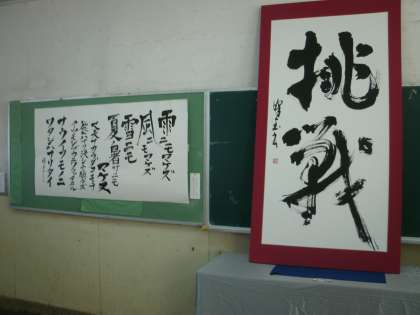 挑戦
雨ニモマケズ
風ニモマケズ
雪ニモ
夏ノ暑サニモ
マケヌ
丈夫ナカラダヲモチ
サウイフモノニ
ワタシハナリタイ